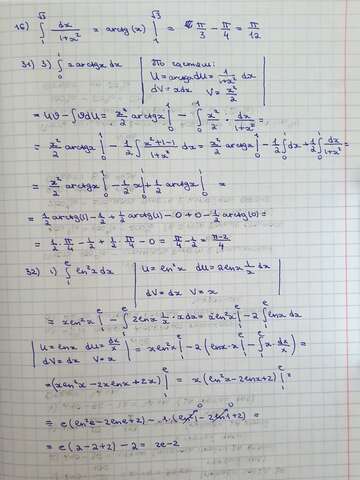 16) ∫₁^√3 dx/(1+x²) = arctg(x) |₁^√3 = π/3 - π/4 = π/12
31) 3) ∫₀¹ x arctgx dx | По частям:
U = arctgx dU = 1/(1+x²) dx
dV = xdx V = x²/2 |
= UV - ∫VdU = x²/2 arctgx |₀¹ - ∫₀¹ x²/2 · dx/(1+x²) =
= x²/2 arctgx |₀¹ - 1/2 ∫ (x²+1-1)/(1+x²) dx = x²/2 arctgx |₀¹ - 1/2 ∫₀¹ dx + 1/2 ∫₀¹ dx/(1+x²) =
= x²/2 arctgx |₀¹ - 1/2 x |₀¹ + 1/2 arctgx |₀¹ =
= 1/2 arctg(1) - 1/2 + 1/2 arctg(1) - 0 + 0 - 1/2 arctg(0) =
= 1/2 · π/4 - 1/2 + 1/2 · π/4 - 0 = π/4 - 1/2 = (π-2)/4
32) 1) ∫₁^e ln²x dx | U = ln²x dU = 2lnx 1/x dx
dV = dx V = x |
= x ln²x |₁^e - ∫₁^e 2lnx 1/x · x dx = x ln²x |₁^e - 2 ∫₁^e lnx dx
| U = lnx dU = dx/x | = x ln²x |₁^e - 2 (lnx · x |₁^e - ∫₁^e x · dx/x) =
| dV = dx V = x |
= (x ln²x - 2x lnx + 2x) |₁^e = x (ln²x - 2lnx + 2) |₁^e =
= e (ln²e - 2lne + 2) - 1 · (ln²1 - 2ln1 + 2) =
= e (1 - 2 + 2) - 2 = 2e - 2